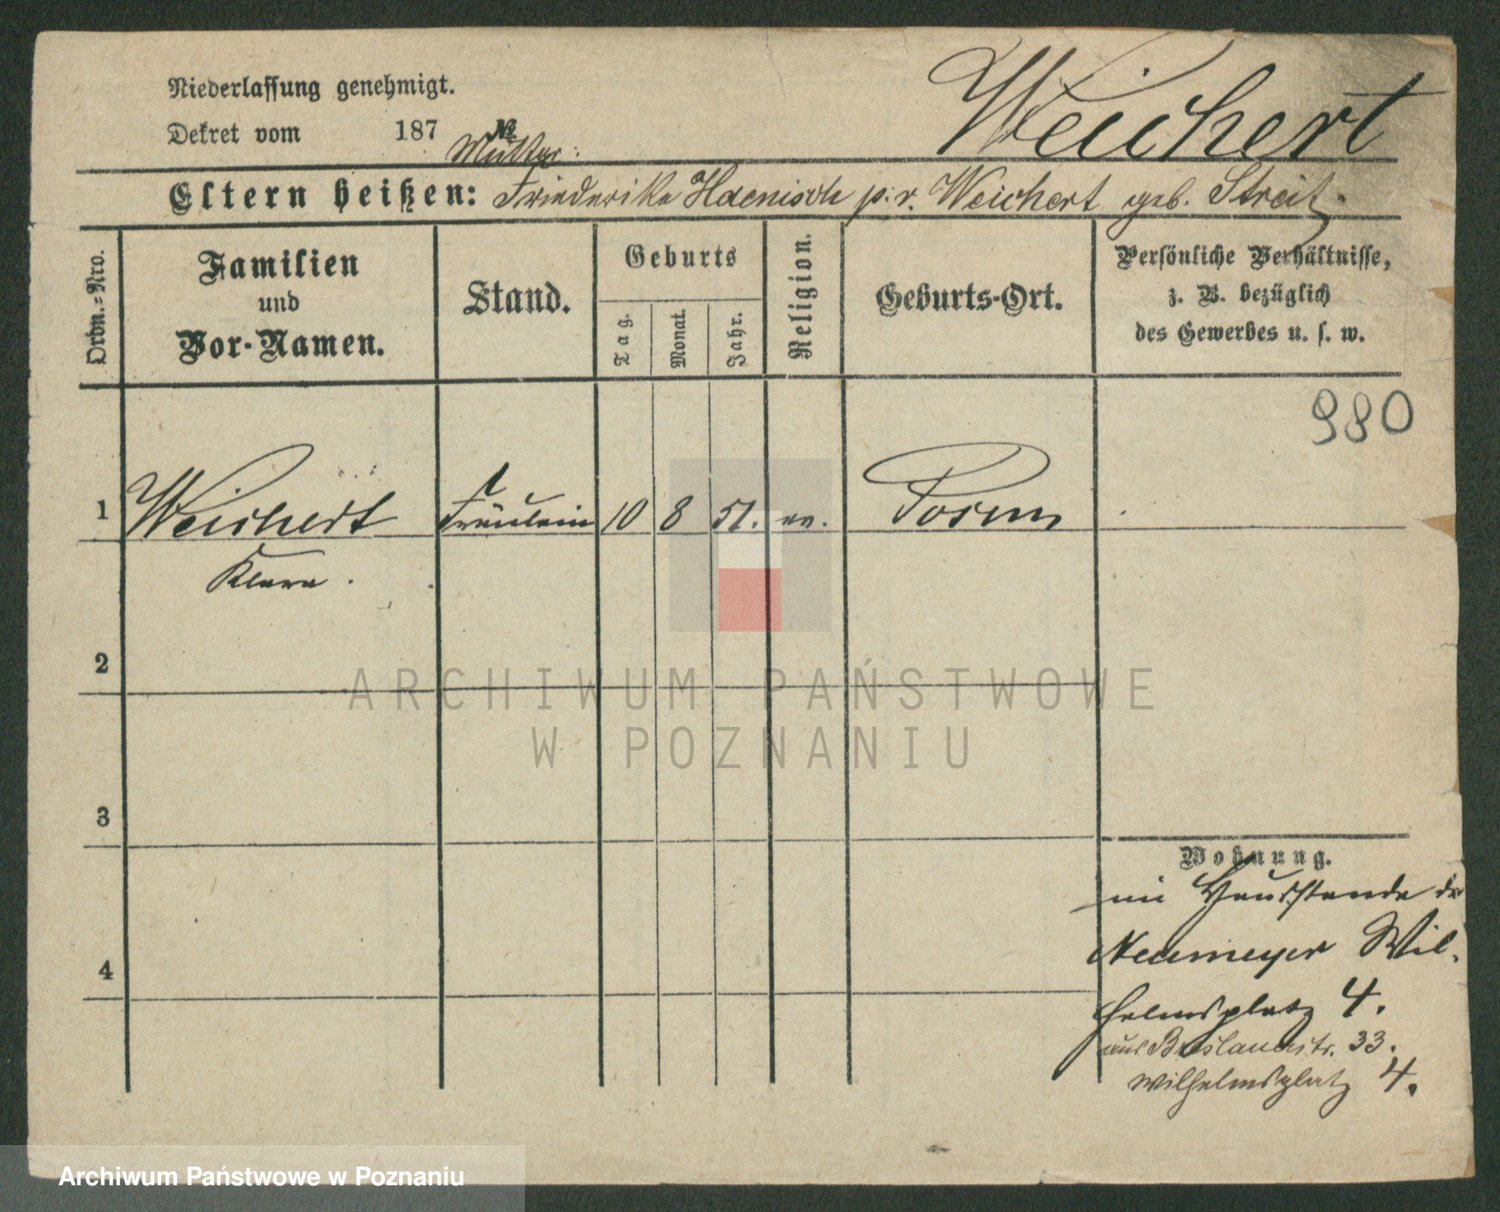 Niederlassung genehmigt.
Dekret vom 187 №
Weichert
Mutter:
Eltern heißen: Friederike Haenisch p. v. Weichert geb. Streit.
Ordn.=Nro.
Familien
und
Vor-Namen.
Stand.
Geburts
Tag.
Monat.
Jahr.
Religion.
Geburts-Ort.
Persönliche Verhältnisse,
z. B. bezüglich
des Gewerbes u. s. w.
980
1 Weichert Fräulein 10 8 51. ev. Posen
Klara.
2
ARCHIWUM PAŃSTWOWE
W POZNANIU
3
Wohnung.
im Hausstande der
4 Neumeyer Wil-
helmsplatz 4.
aus Breslauerstr. 33.
Wilhelmsplatz 4.
Archiwum Państwowe w Poznaniu